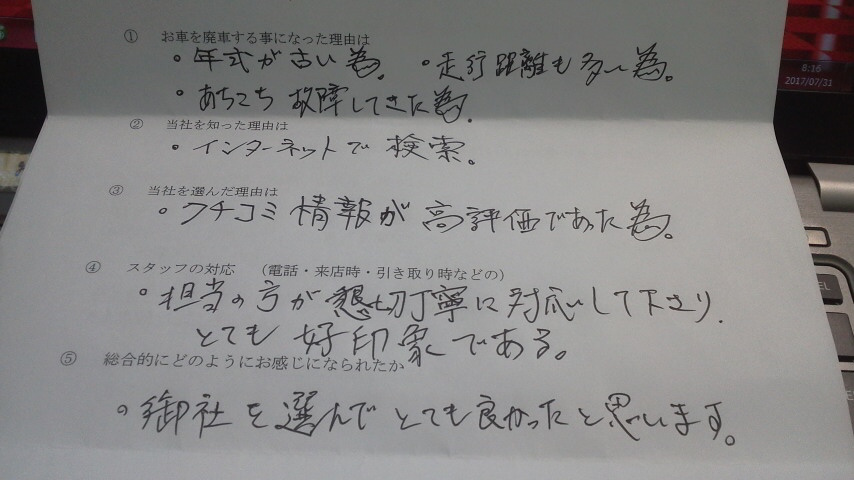 ① お車を廃車する事になった理由は
・年式が古い為。 ・走行距離も多い為。
・あちこち故障してきた為。
② 当社を知った理由は
・インターネットで検索。
③ 当社を選んだ理由は
・クチコミ情報が高評価であった為。
④ スタッフの対応 （電話・来店時・引き取り時などの）
・担当の方が懇切丁寧に対応して下さり、
とても好印象である。
⑤ 総合的にどのようにお感じになられたか
・御社を選んでとても良かったと思います。
8:16
2017/07/31